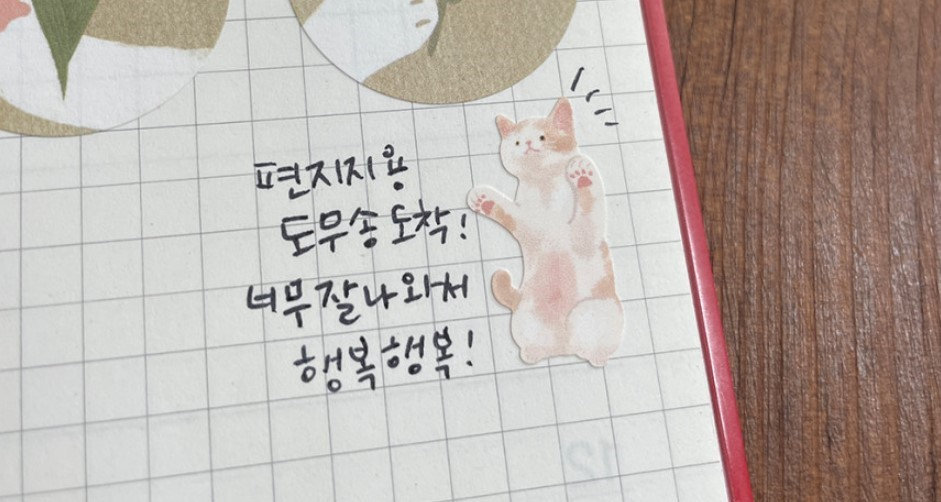 편지지용
도무송 도착!
너무 잘 나와서
행복행복!